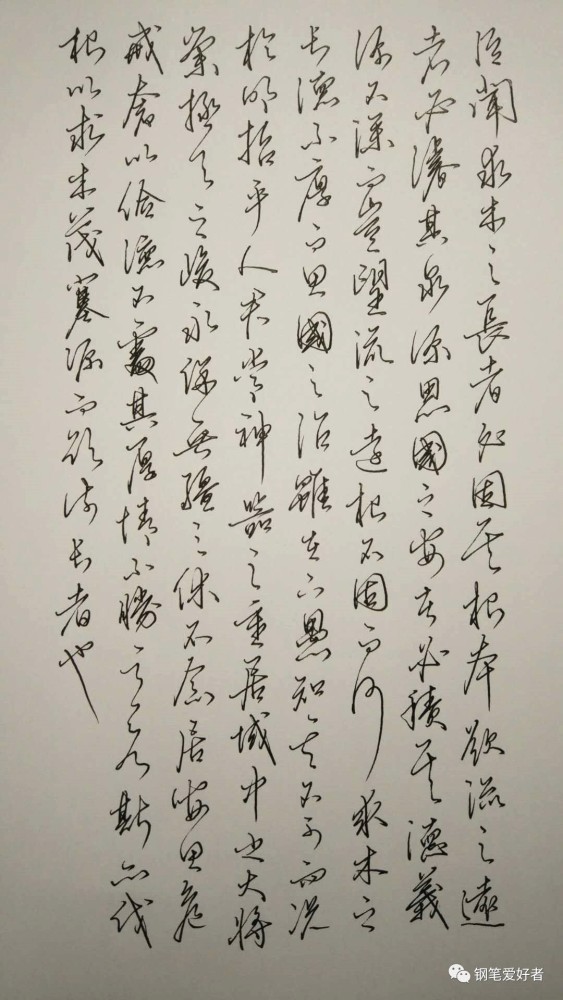 臣聞求木之長者必固其根本欲流之遠
者必濬其泉源思國之安者必積其德義
源不深而豈望流之遠根不固而何求木之
长德不厚而思國之治雖在下愚知其不可而况
於明哲乎人君當神器之重居域中之大將
崇極天之峻永保無疆之休不念居安思危
戒奢以儉德不處其厚情不勝其欲斯亦伐
根以求木茂塞源而欲流长者也
钢笔爱好者